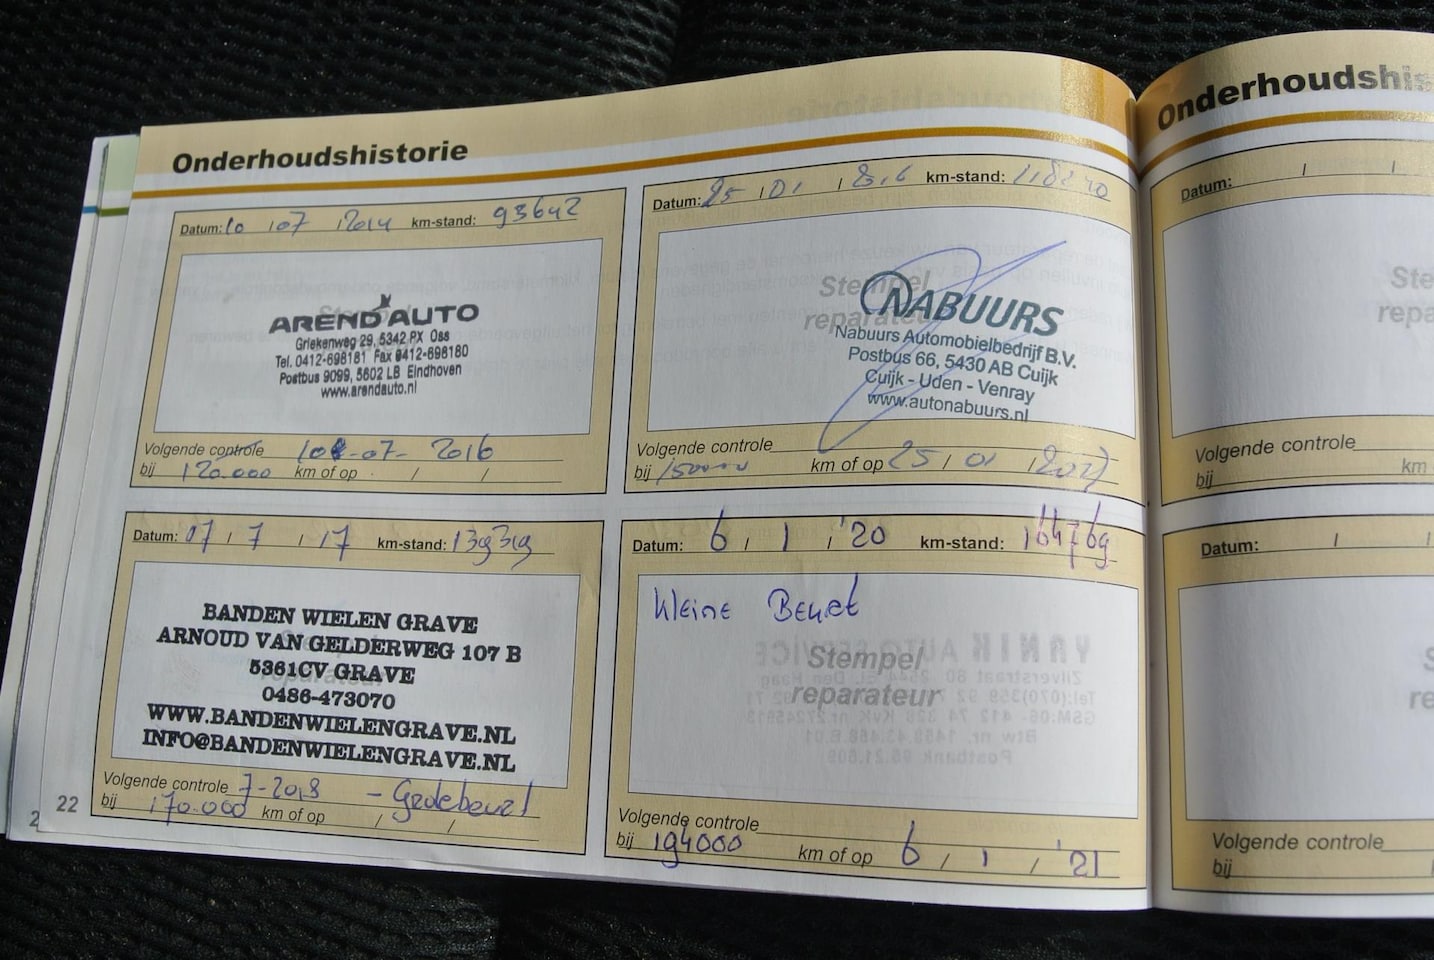 Onderhoudshistorie
Datum: 10 / 07 / 2014 km-stand: 93642
AREND AUTO
Griekenweg 29, 5342 PX Oss
Tel. 0412-698181 Fax 0412-698180
Postbus 9099, 5602 LB Eindhoven
www.arendauto.nl
Volgende controle 10-07-2016
bij 120.000 km of op / /
Datum: 25 / 01 / km-stand:
Stempel
reparateur
NABUURS
Nabuurs Automobielbedrijf B.V.
Postbus 66, 5430 AB Cuijk
Cuijk - Uden - Venray
www.autonabuurs.nl
Volgende controle
bij 150000 km of op 25 / 01 / 2017
Datum: 07 / 7 / 17 km-stand: 139319
BANDEN WIELEN GRAVE
ARNOUD VAN GELDERWEG 107 B
5361CV GRAVE
0486-473070
WWW.BANDENWIELENGRAVE.NL
INFO@BANDENWIELENGRAVE.NL
Volgende controle 7-2018 -
bij 170.000 km of op / /
22
Datum: 6 / 1 / '20 km-stand: 164769
Kleine Beurt
Stempel
reparateur
Volgende controle
bij 194000 km of op 6 / 1 / '21
Onderhoudshis
Datum: / /
Ste
repa
Volgende controle
bij km
Datum: / /
S
re
Volgende controle
bij